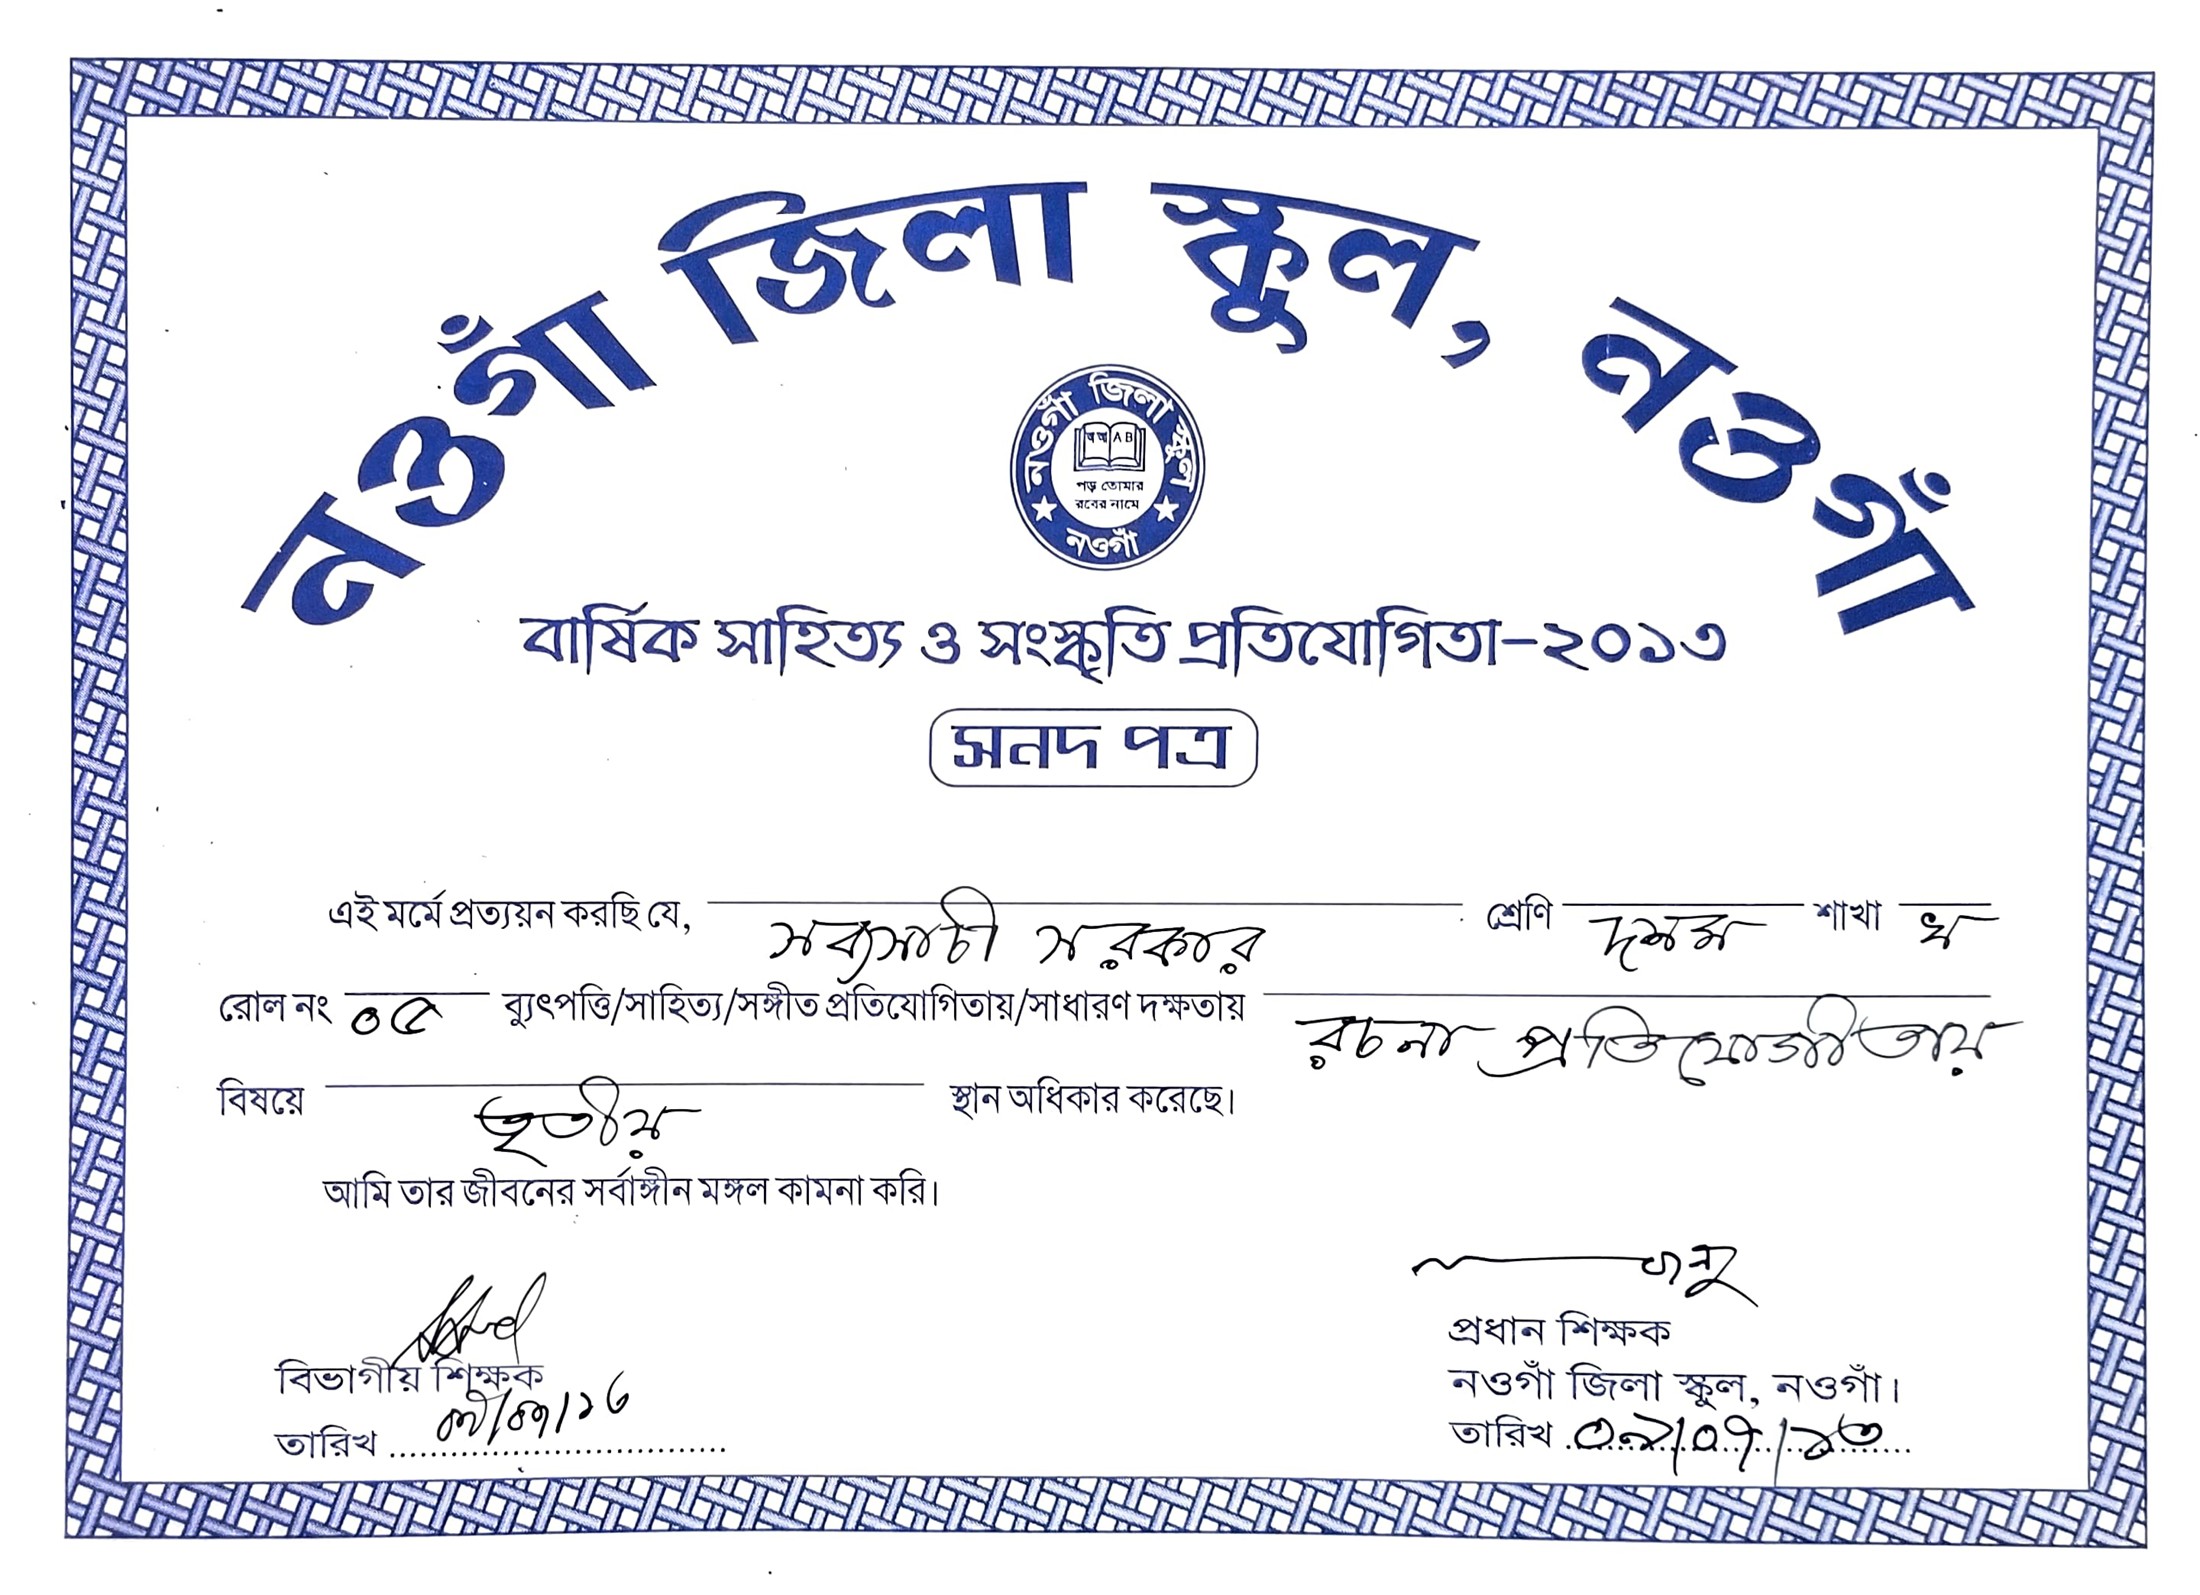 নওগাঁ জিলা স্কুল, নওগাঁ
নওগাঁ জিলা স্কুল
অ আ A B
পড় তোমার
রবের নামে
নওগাঁ
বার্ষিক সাহিত্য ও সংস্কৃতি প্রতিযোগিতা-২০১৩
সনদ পত্র
এই মর্মে প্রত্যয়ন করছি যে, সব্যসাচী সরকার শ্রেণি দশম শাখা খ
রোল নং ০৫ ব্যুৎপত্তি/সাহিত্য/সঙ্গীত প্রতিযোগিতায়/সাধারণ দক্ষতায় রচনা প্রতিযোগীতায়
বিষয়ে তৃতীয় স্থান অধিকার করেছে।
আমি তার জীবনের সর্বাঙ্গীন মঙ্গল কামনা করি।
বিভাগীয় শিক্ষক
তারিখ
প্রধান শিক্ষক
নওগাঁ জিলা স্কুল, নওগাঁ।
তারিখ ০৯/০৭/১৩